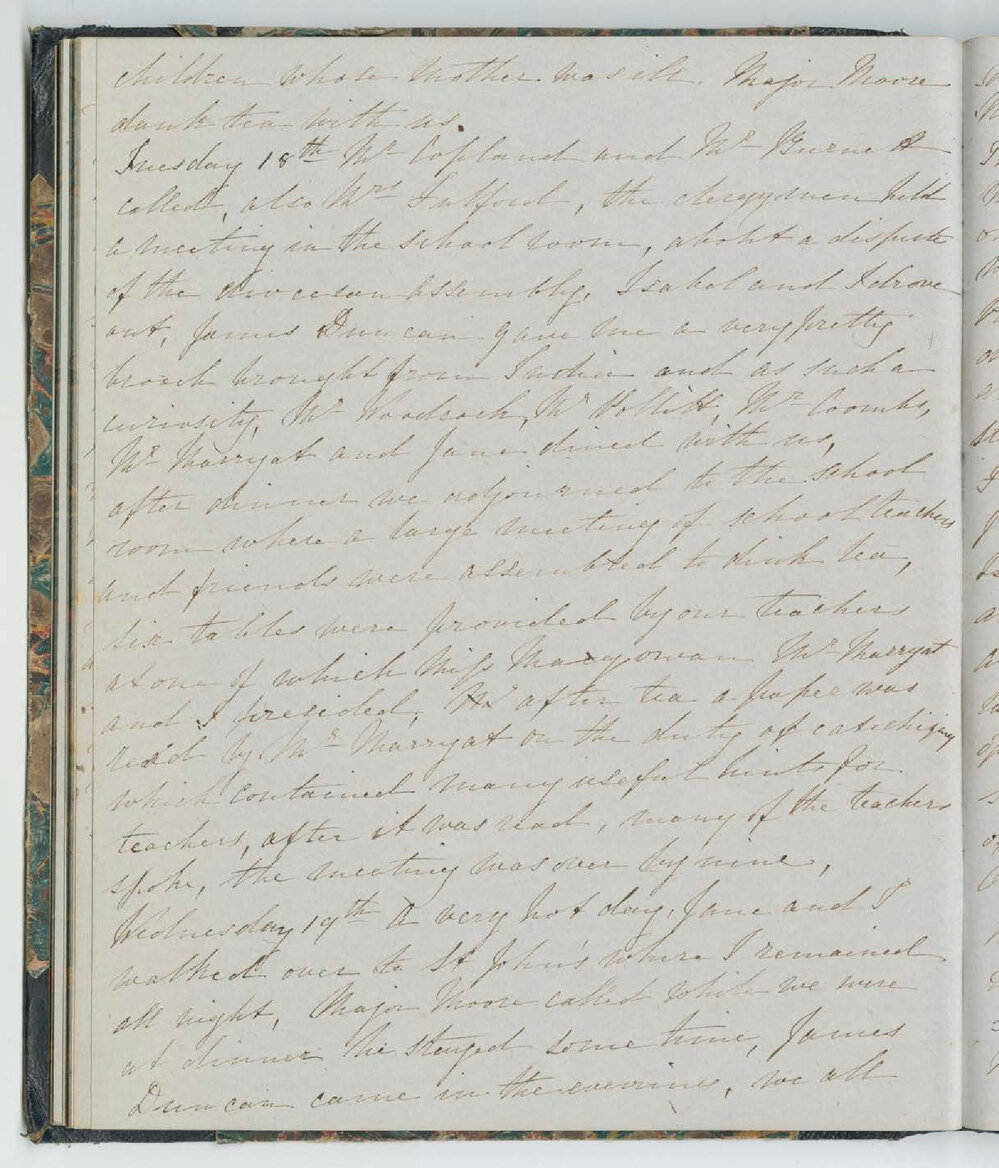 children whose mother was ill. Major Moore
dank tea with us.
Tuesday 18th Mr Copland and Mr Burne
called, also Mrs Fulford, the clergymen held
a meeting in the school room, about a dispute
of the diocesan assembly, Isabel and I drove
out, James Duncan gave me a very pretty
broach brought from India and as such a
curiosity, Mr Woodcock, Mr Pollitt, Mr Coombs,
Mr Marryat and Jane dined with us,
after dinner we adjourned to the school
room where a large meeting of school teachers
and friends were assembled to dink tea,
six tables were provided by our teachers
at one of which Miss Macgowan Mr Marryat
and I presided, after tea a paper was
read by Mr Marryat on the duty of catechizing
which contained many useful hints for
teachers, after it was read, many of the teachers
spoke, the meeting was over by nine,
Wednesday 19th A very hot day, Jane and I
walked over to St John's where I remained
all night, Major Moore called while we were
at dinner he stayed some time, James
Duncan came in the evening, we all